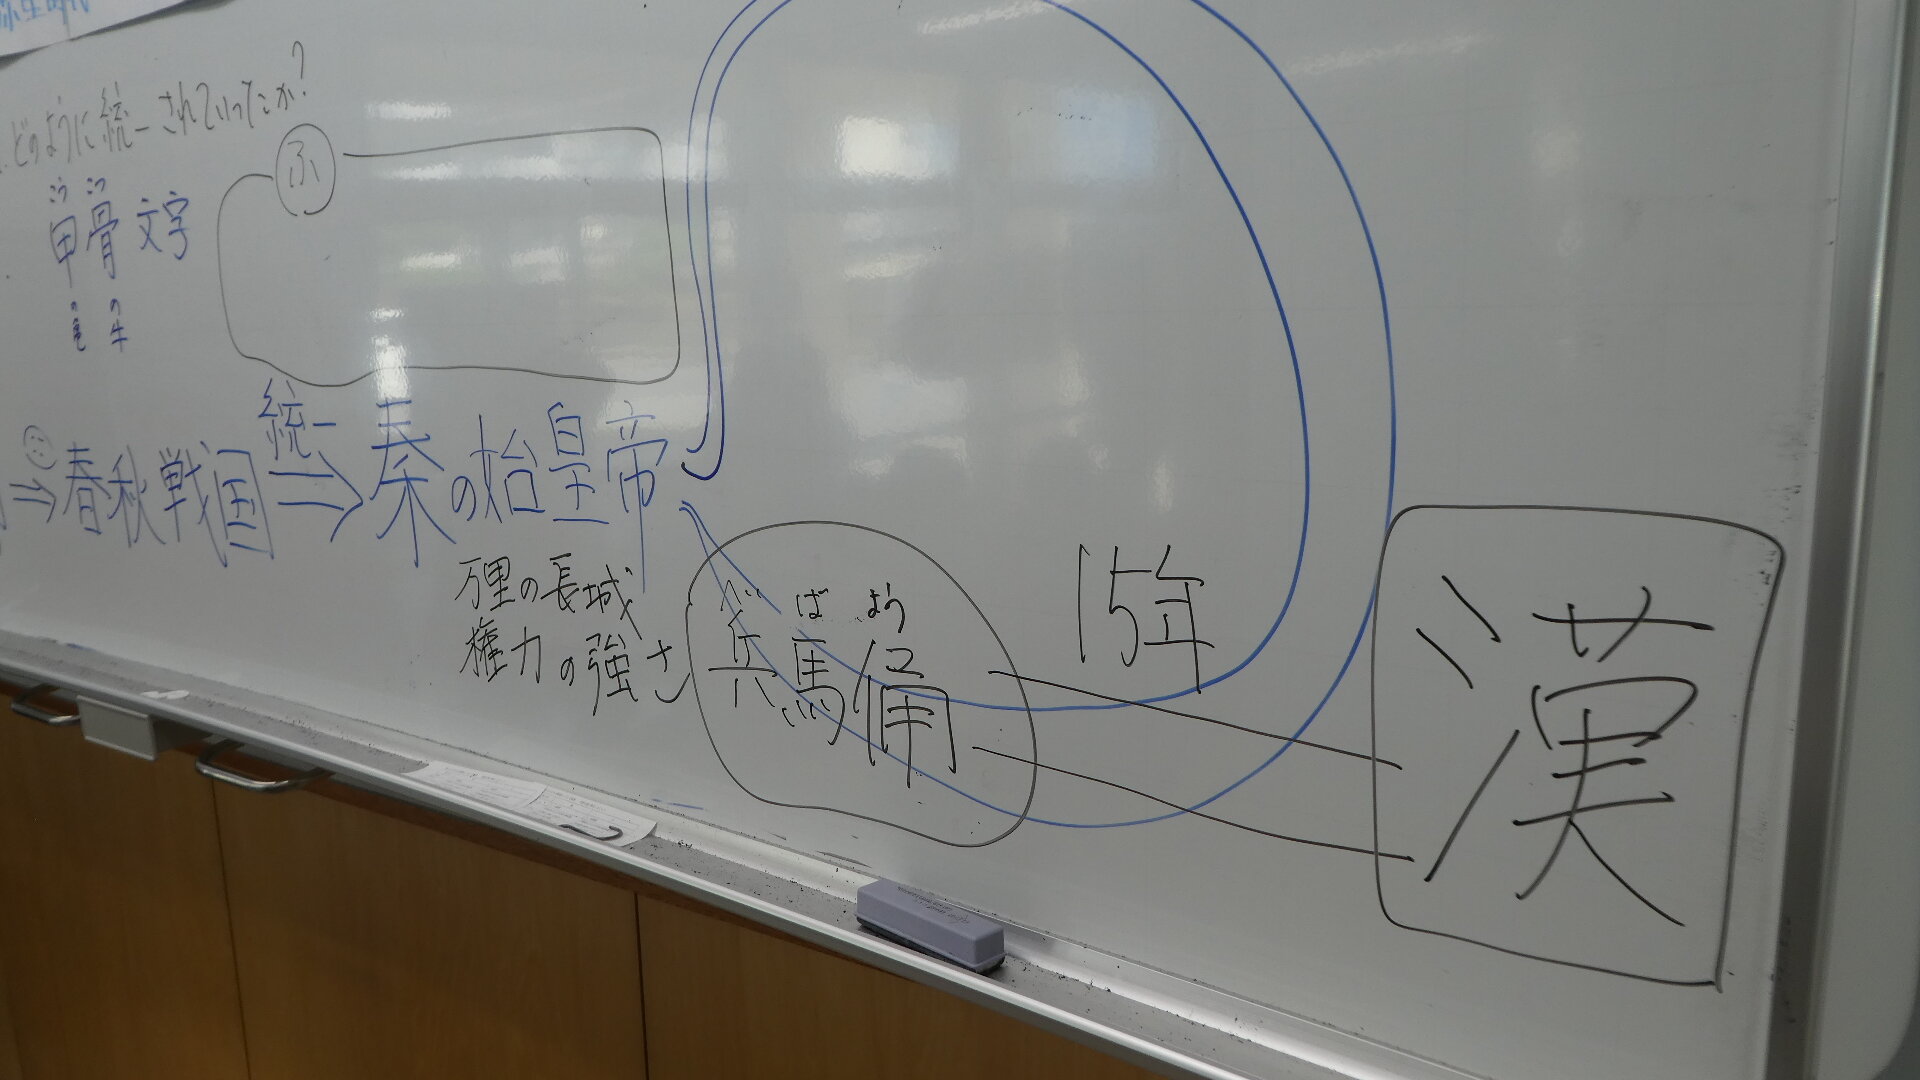 弥生時代
どのように統一されていったか?
ふ
こう こつ
甲骨文字
の の
亀 牛
統一
⇒春秋戦国⇒秦の始皇帝
万里の長城
権力の強さ
へい ば よう
兵馬俑
15年
漢